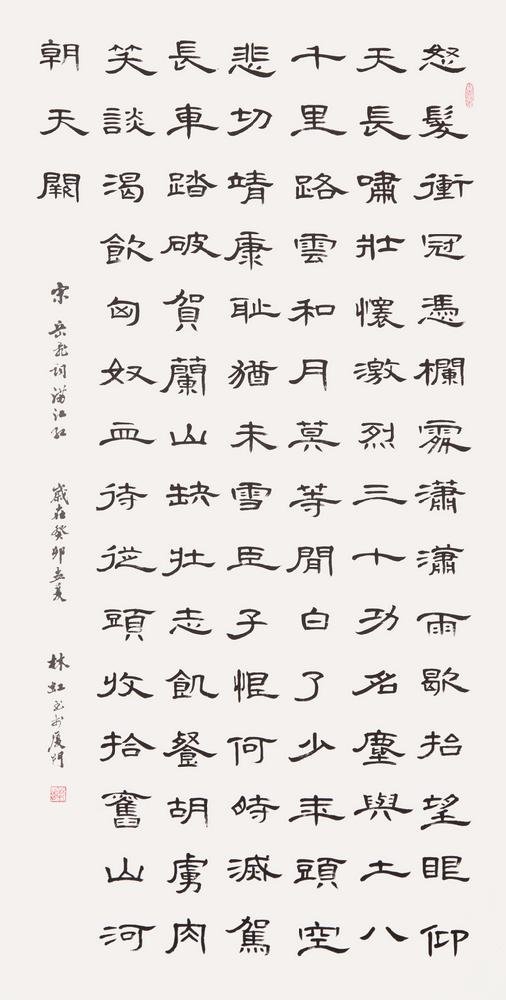 怒髮衝冠憑欄處瀟瀟雨歇抬望眼仰
天長嘯壯懷激烈三十功名塵與土八
千里路雲和月莫等閒白了少年頭空
悲切靖康耻猶未雪臣子恨何時滅駕
長車踏破賀蘭山缺壯志飢餐胡虜肉
笑談渴飲匈奴血待從頭收拾舊山河
朝天闕
宋岳飛詞滿江紅 歲在癸卯孟夏 林虹書於廈門